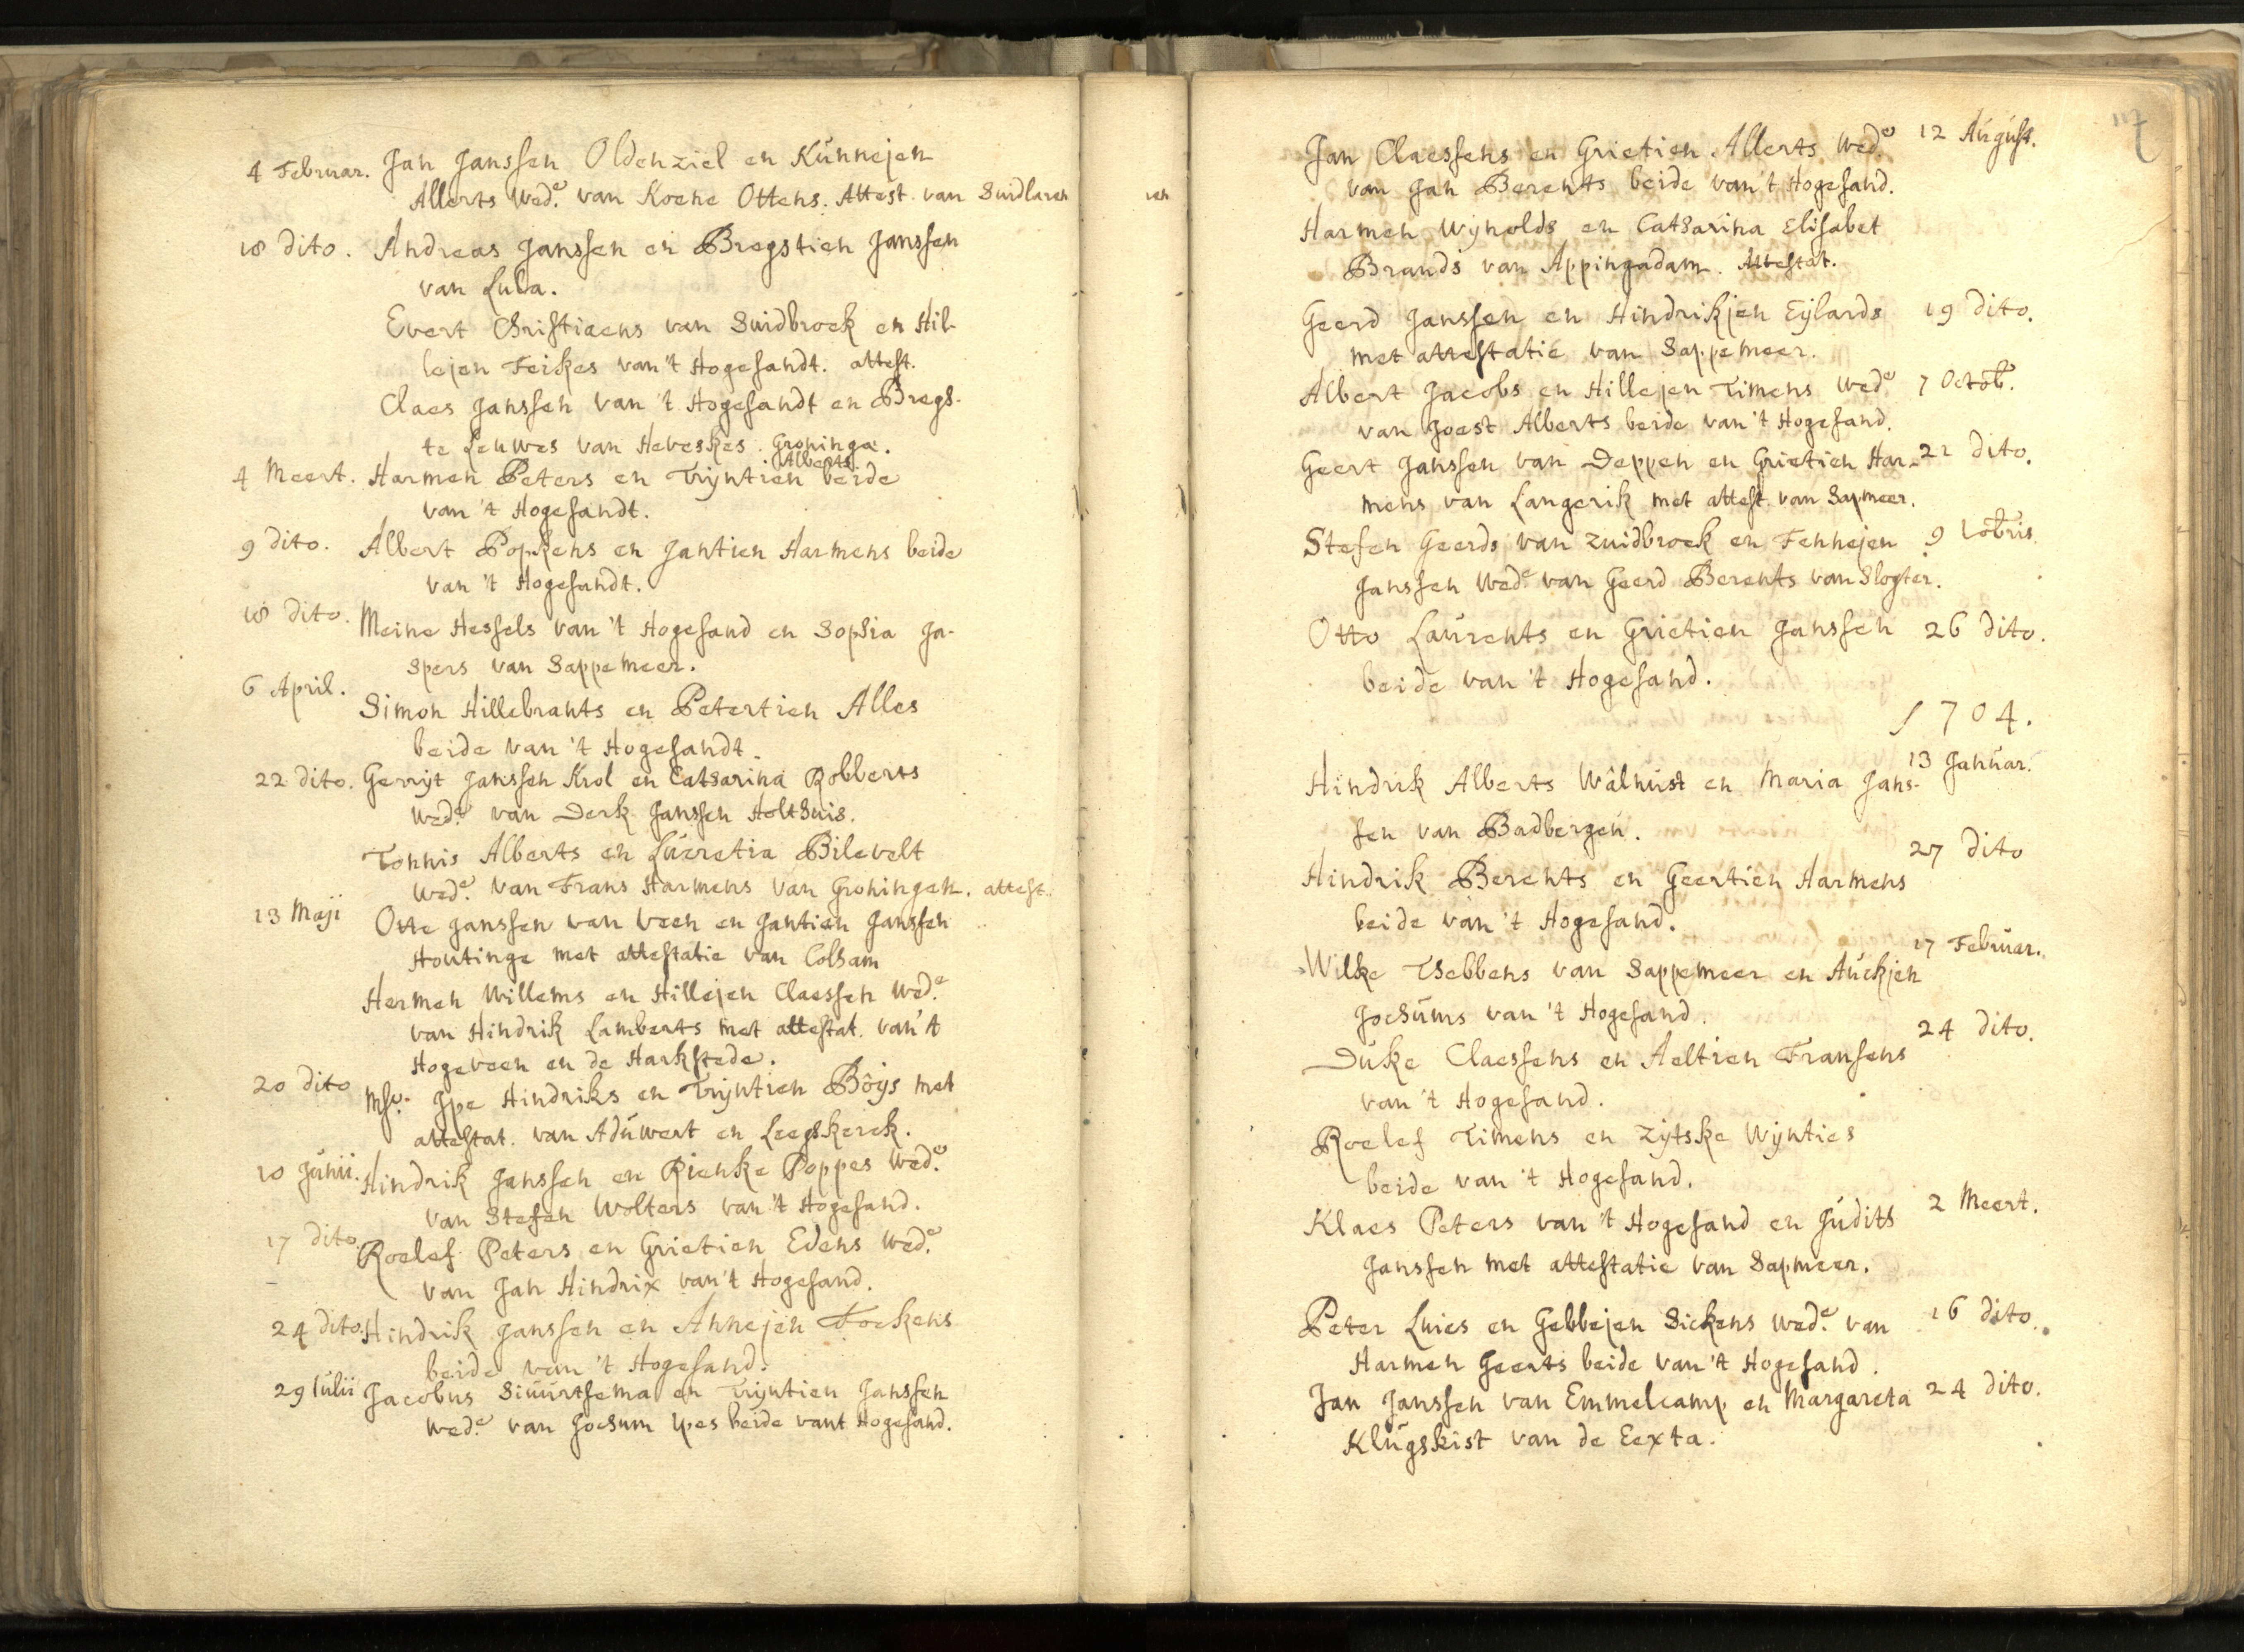 4 Februar. Jan Janssen Oldenziel en Kunnejen
Allerts Wed.e van Koene Ottens. Attest. van Suidlaren
18 dito. Andreas Janssen en Bregstien Janssen
van Lula.
Evert Christiaens van Suidbroek en Hil-
lejen Feikes van 't Hogesandt. attest.
Claes Janssen van 't Hogesandt en Bregs-
te Leuwes van Heveskes. Groninga.
4 Meert. Harmen Peters en Trijntien Alberts beide
van 't Hogesandt.
9 dito. Albert Popkens en Jantien Harmens beide
van 't Hogesandt.
18 dito. Meine Hessels van 't Hogesand en Sophia Ja-
spers van Sappemeer.
6 April. Simon Hillebrants en Petertien Alles
beide van 't Hogesandt.
22 dito. Gerrijt Janssen Krol en Catharina Robberts
Wed.e van Derk Janssen Holthuis.
Tonnis Alberts en Lucretia Bilevelt
Wed.e van Frans Harmens van Groningen. attest.
13 Maji Otte Janssen van Veen en Jantien Janssen
Houtinge met attestatie van Colham
Hermen Willems en Hillejen Claessen Wed.e
van Hindrik Lamberts met attestat. van 't
Hogeveen en de Harkstede.
20 dito Msr. Ipe Hindriks en Trijntien Bôijs met
attestat. van Aduwert en Leegskerck.
10 Junii. Hindrik Janssen en Rienke Poppes Wed.e
van Stefen Wolters van 't Hogesand.
17 dito Roelef Peters en Grietien Edens Wed.e
van Jan Hindrix van 't Hogesand.
24 dito. Hindrik Janssen en Annejen Fockens
beide van 't Hogesand.
29 Iulii Jacobus Siuurtsema en Trijntien Janssen
Wed.e van Jochum Ipes beide vant Hogesand.
117
Jan Claessens en Grietien Allerts Wed.e 12 August.
van Jan Berents beide van 't Hogesand.
Harmen Wijnolds en Catharina Elisabet
Brands van Appingadam. Attestat.
Geerd Janssen en Hindrikjen Eijlards 19 dito.
met attestatie van Sappemeer.
Albert Jacobs en Hillejen Timens Wed.e 7 Octob.
van Joest Alberts beide van 't Hogesand.
Geert Janssen van Deppen en Grietien Har- 21 dito.
mens van Langerik met attest. van Sapmeer.
Stefen Geerds van Zuidbroek en Fennejen 9 Xbris
Janssen Wed.e van Geerd Berents van Slogter.
Otto Laurents en Grietien Janssen 26 dito.
beide van 't Hogesand.
1704.
Hindrik Alberts Wâlhuist en Maria Jans- 13 Januar.
sen van Badbergen.
Hindrik Berents en Geertien Harmens 27 dito
beide van 't Hogesand.
Wilke Thebbens van Sappemeer en Auckjen 17 Februar.
Jochums van 't Hogesand.
Duke Claessens en Aeltien Fransens 24 dito.
van 't Hogesand.
Roelef Timens en Zijtske Wijnties
beide van 't Hogesand.
Klaes Peters van 't Hogesand en Judith 2 Meert.
Janssen met attestatie van Sapmeer.
Peter Luies en Gebbejen Sickens Wed.e van 16 dito.
Harmen Geerts beide van 't Hogesand.
Jan Janssen van Emmelcamp en Margareta 24 dito.
Klugskist van de Eexta.